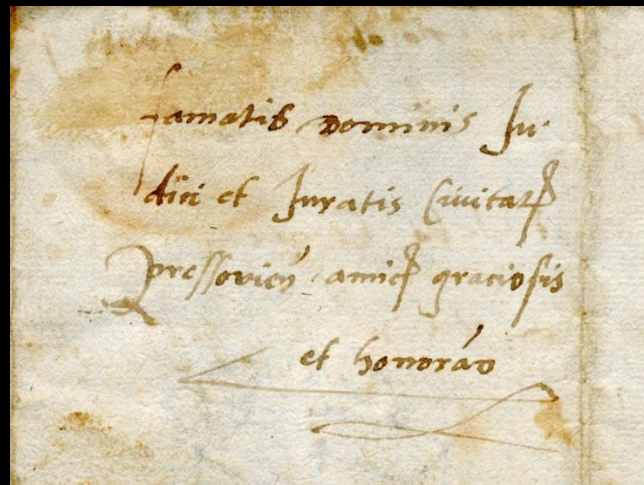 famatis Dominis Ju-
dici et Juratis Civitat
Pressovien amic graciosis
et honoran